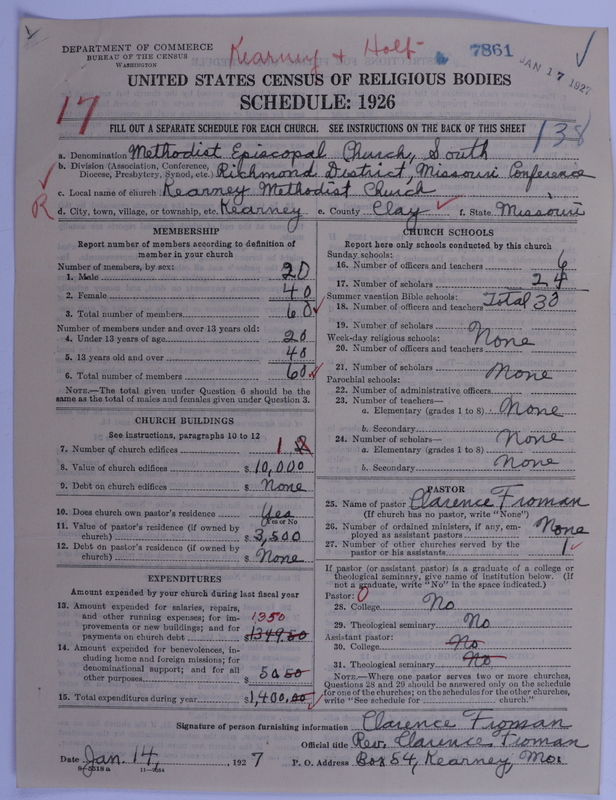 DEPARTMENT OF COMMERCE
BUREAU OF THE CENSUS
WASHINGTON
Kearney + Holt
7861
JAN 17 1927
UNITED STATES CENSUS OF RELIGIOUS BODIES
SCHEDULE: 1926
17
138
FILL OUT A SEPARATE SCHEDULE FOR EACH CHURCH. SEE INSTRUCTIONS ON THE BACK OF THIS SHEET
a. Denomination Methodist Episcopal Church, South
b. Division (Association, Conference, Diocese, Presbytery, Synod, etc.) Richmond District, Missouri Conference
c. Local name of church Kearney Methodist Church
R
d. City, town, village, or township, etc. Kearney e. County Clay f. State Missouri
MEMBERSHIP
Report number of members according to definition of
member in your church
Number of members, by sex:
1. Male 20
2. Female 40
3. Total number of members 60
Number of members under and over 13 years old:
4. Under 13 years of age 20
5. 13 years old and over 40
6. Total number of members 60
NOTE.—The total given under Question 6 should be the
same as the total of males and females given under Question 3.
CHURCH BUILDINGS
See instructions, paragraphs 10 to 12
7. Number of church edifices 1 2
8. Value of church edifices $ 10,000
9. Debt on church edifices $ None
10. Does church own pastor's residence? Yea
Yes or No
11. Value of pastor's residence (if owned by
church) $ 3,500
12. Debt on pastor's residence (if owned by
church) $ None
EXPENDITURES
Amount expended by your church during last fiscal year
13. Amount expended for salaries, repairs,
and other running expenses; for im-
provements or new buildings; and for
payments on church debt $ 1350 1349.50
14. Amount expended for benevolences, in-
cluding home and foreign missions; for
denominational support; and for all
other purposes $ 50.50
15. Total expenditures during year $ 1,400.00
CHURCH SCHOOLS
Report here only schools conducted by this church
Sunday schools:
16. Number of officers and teachers 6
17. Number of scholars 24
Summer vacation Bible schools: Total 30
18. Number of officers and teachers
19. Number of scholars None
Week-day religious schools:
20. Number of officers and teachers
21. Number of scholars None
Parochial schools:
22. Number of administrative officers
23. Number of teachers—
a. Elementary (grades 1 to 8) None
b. Secondary
24. Number of scholars— None
a. Elementary (grades 1 to 8)
b. Secondary None
PASTOR
25. Name of pastor Clarence Froman
(If church has no pastor, write "None")
26. Number of ordained ministers, if any, em-
ployed as assistant pastors None
27. Number of other churches served by the
pastor or his assistants 1
If pastor (or assistant pastor) is a graduate of a college or
theological seminary, give name of institution below. (If
not a graduate, write "No" in the space indicated.)
Pastor: 0
28. College No
29. Theological seminary No
Assistant pastor:
30. College No
31. Theological seminary No
NOTE.—Where one pastor serves two or more churches,
Questions 28 and 29 should be answered only on the schedule
for one of the churches; on the schedules for the other churches,
write "See schedule for church."
Signature of person furnishing information Clarence Froman
Official title Rev. Clarence Froman
Date Jan. 14, 1927 P. O. Address Box 54, Kearney, Mo.
8-5518a 11-9654